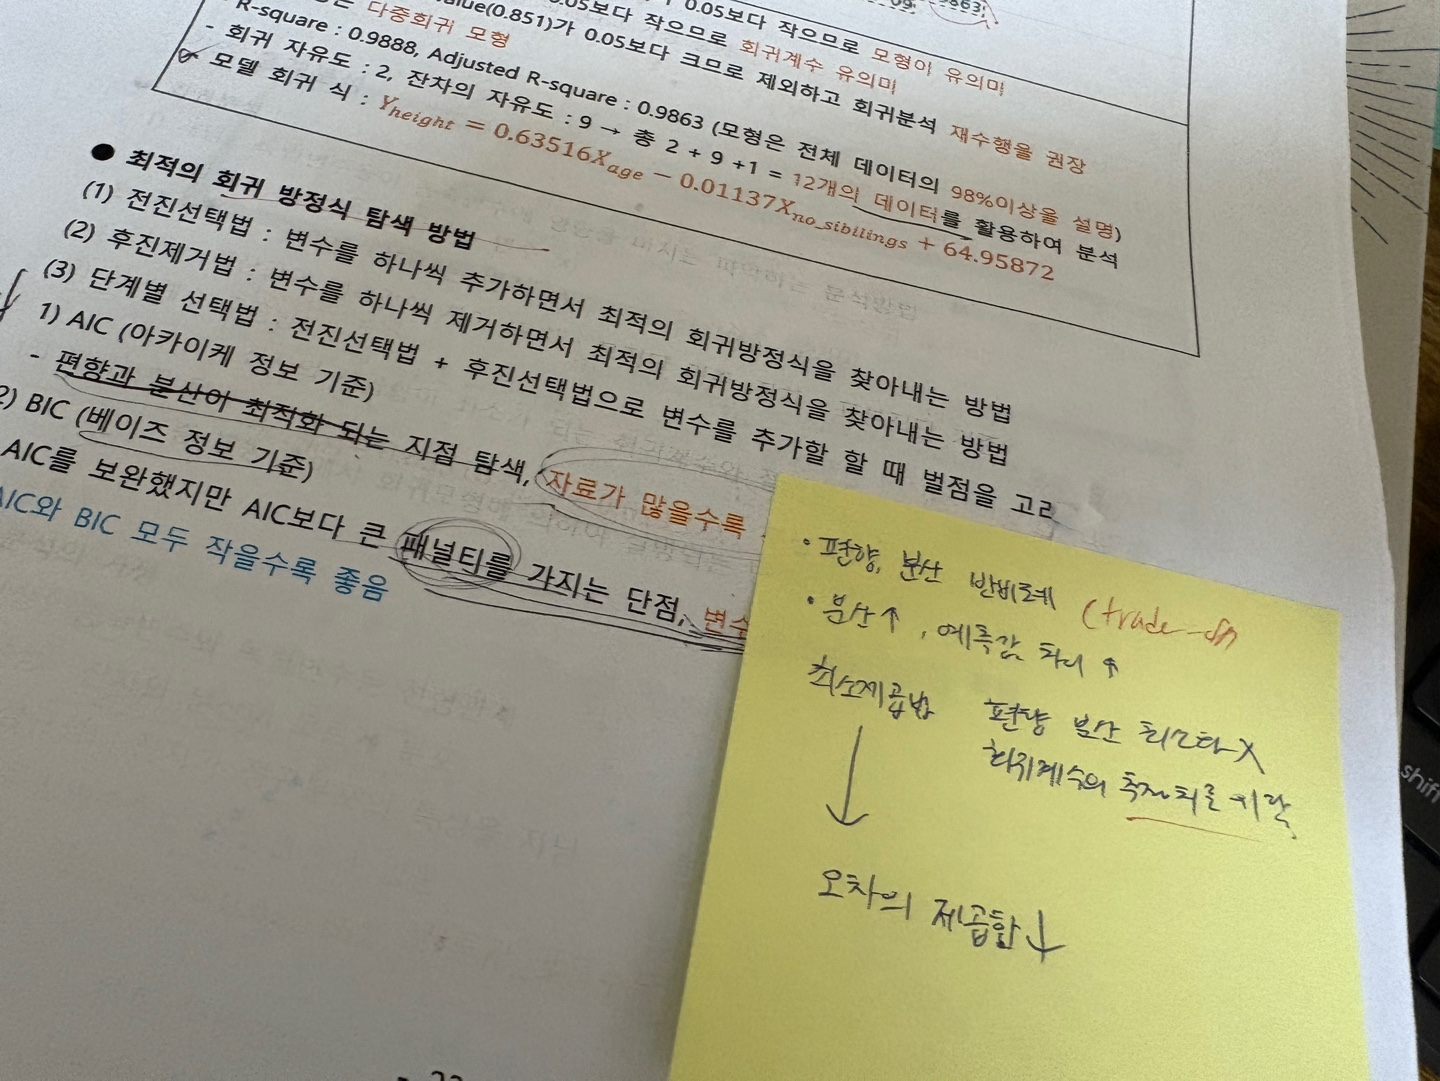 9863,
0.05보다 작으므로 모형이 유의미
0.05보다 작으므로 회귀계수 유의미
다중회귀 모형
value(0.851)가 0.05보다 크므로 제외하고 회귀분석 재수행을 권장
R-square : 0.9888, Adjusted R-square : 0.9863 (모형은 전체 데이터의 98%이상을 설명)
- 회귀 자유도 : 2, 잔차의 자유도 : 9 → 총 2 + 9 +1 = 12개의 데이터를 활용하여 분석
모델 회귀 식 : Yheight = 0.63516Xage − 0.01137Xno_sibilings + 64.95872
● 최적의 회귀 방정식 탐색 방법
(1) 전진선택법 : 변수를 하나씩 추가하면서 최적의 회귀방정식을 찾아내는 방법
(2) 후진제거법 : 변수를 하나씩 제거하면서 최적의 회귀방정식을 찾아내는 방법
(3) 단계별 선택법 : 전진선택법 + 후진선택법으로 변수를 추가할 할 때 벌점을 고려
1) AIC (아카이케 정보 기준)
- 편향과 분산이 최적화 되는 지점 탐색, 자료가 많을수록
2) BIC (베이즈 정보 기준)
AIC를 보완했지만 AIC보다 큰 패널티를 가지는 단점, 변수
AIC와 BIC 모두 작을수록 좋음
• 편향, 분산 반비례 (trade-off
• 분산↑, 예측값 차이 ↑
최소제곱법 편향 분산 최소화X
회귀계수의 추정치를
↓
오차의 제곱합↓
shift